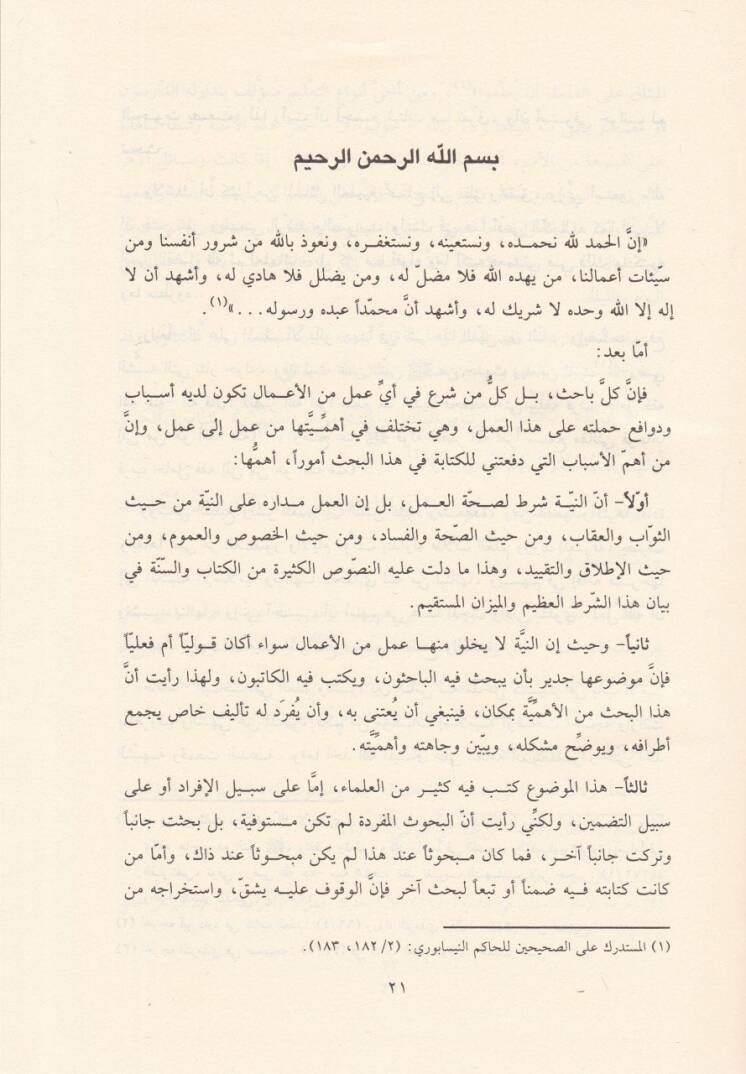 بسم الله الرحمن الرحيم
«إنَّ الحمد لله نحمـده، ونستعينه، ونستغفـره، ونعوذ بالله من شرور أنفسنا ومن
سيّئات أعمالنا، من يهده الله فلا مضلّ له، ومن يضلل فلا هادي له، وأشهد أن لا
إله إلا الله وحده لا شريك له، وأشهد أنَّ محمّداً عبده ورسوله...»(١).
أمّا بعد:
فإنَّ كلَّ باحث، بـل كلُّ من شرع في أيِّ عمل من الأعـمال تكون لديه أسـباب
ودوافع حملته على هذا العمل، وهي تختلف في أهمِّـيَّتها من عمل إلى عمل، وإنَّ
من أهمّ الأسباب التي دفعتني للكتابة في هذا البحث أموراً، أهمُّها:
أوّلاً- أنّ النيّـة شرط لصـحّة العمـل، بل إن العمل مـداره على النيّة من حـيث
الثوّاب والعقاب، ومن حيث الصّحة والفساد، ومن حيث الخصوص والعموم، ومن
حيث الإطلاق والتقييد، وهذا ما دلت عليه النصّوص الكثيرة من الكتاب والسنّة في
بيان هذا الشّرط العظيم والميزان المستقيم.
ثانياً- وحيث إن النيَّة لا يخلو منهـا عمل من الأعمال سواء أكان قـوليّاً أم فعليّاً
فإنَّ موضوعها جدير بأن يبحث فيه الباحثون، ويكتب فيه الكاتبون، ولهذا رأيت أنَّ
هذا البحث من الأهميَّة بمكان، فينبغي أن يُعتنى به، وأن يُفرَد له تأليف خاص يجمع
أطرافه، ويوضِّح مشكله، ويبّين وجاهته وأهميَّته.
ثالثاً- هذا الموضوع كتب فيه كثيـر من العلماء، إمَّا على سبيل الإفراد أو على
سبيل التضمين، ولكنِّي رأيت أنّ البحوث المفردة لم تكن مـستوفية، بل بحثت جانباً
وتركت جانباً آخـر، فما كان مـبحوثاً عند هذا لم يكن مبحـوثاً عند ذاك، وأمّا من
كانت كتابته فيـه ضمناً أو تبعاً لبحث آخر فإنَّ الوقوف عليـه يشقّ، واستخراجه من
(١) المستدرك على الصحيحين للحاكم النيسابوري: (٢/ ١٨٢، ١٨٣).
٢١